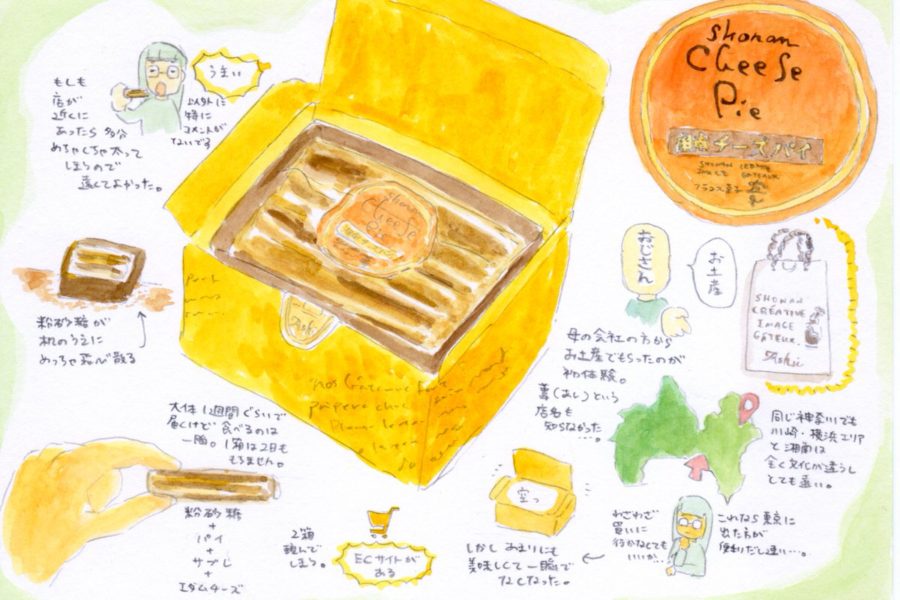 もしも
店が
近くに
あったら 多分
めちゃくちゃ太って
しまうので
遠くてよかった。
うまい
以外に
特に
コメントが
ないです
Shonan
Cheese
Pie
湘南チーズパイ
SHONAN
フランス菓子
Shonan
Cheese
Pie
おじさん
お土産
SHONAN
CREATIVE
IMAGE
GATEUX.
Ashi
母の会社の方から
お土産でもらったのが
初体験。
葦(あし)という
店名も
知らなかった
…。
粉砂糖が
机のうえに
めっちゃ飛び散る
大体1週間ぐらいで
届くけど 食べるのは
一瞬。1箱は2日も
もちません。
同じ神奈川でも
川崎・横浜エリア
と湘南は
全く文化が違うし
とても遠い。
粉砂糖
+
パイ
+
サブレ
+
エダムチーズ
2箱
頼んで
しまう。
ECサイトが
ある
空っ
しかし あまりにも
美味しくて一瞬で
なくなった。
わざわざ
買いに
行かなくても
いいか…
これなら東京に
出た方が
便利だし速い…。